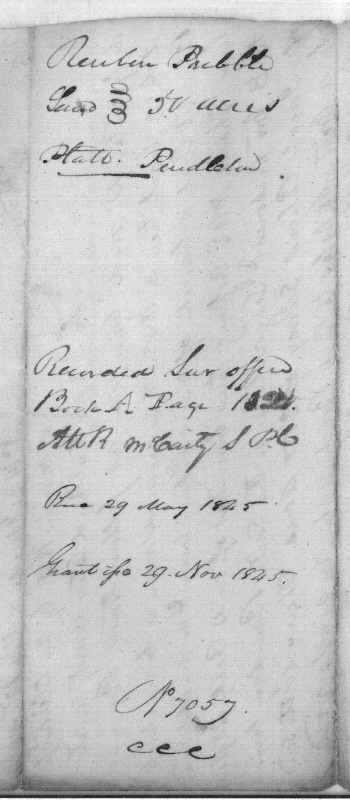 Reuben Pribble
Surv 50 acres
Platt. Pendleton.
Recorded Sur office
Book A Page
Att R McCarty S P C
Rec 29 May 1845
Grant iss 29. Nov 1845.
No 7057.
ccc